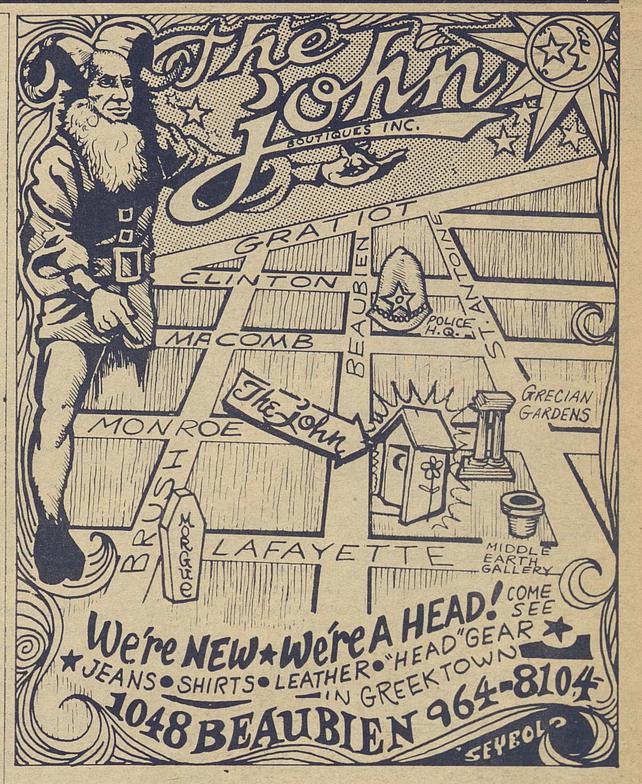 The
john
BOUTIQUES INC.
GRATIOT
CLINTON
BEAUBIEN
ST. ANTOINE
POLICE
H.Q.
MACOMB
The John
GRECIAN
GARDENS
MONROE
BRUSH
MORGUE
LAFAYETTE
MIDDLE
EARTH
GALLERY
We're NEW★We're A HEAD!
COME
SEE
★JEANS•SHIRTS•LEATHER•"HEAD"GEAR★
IN GREEKTOWN
1048 BEAUBIEN 964-8104
SEYBOLD